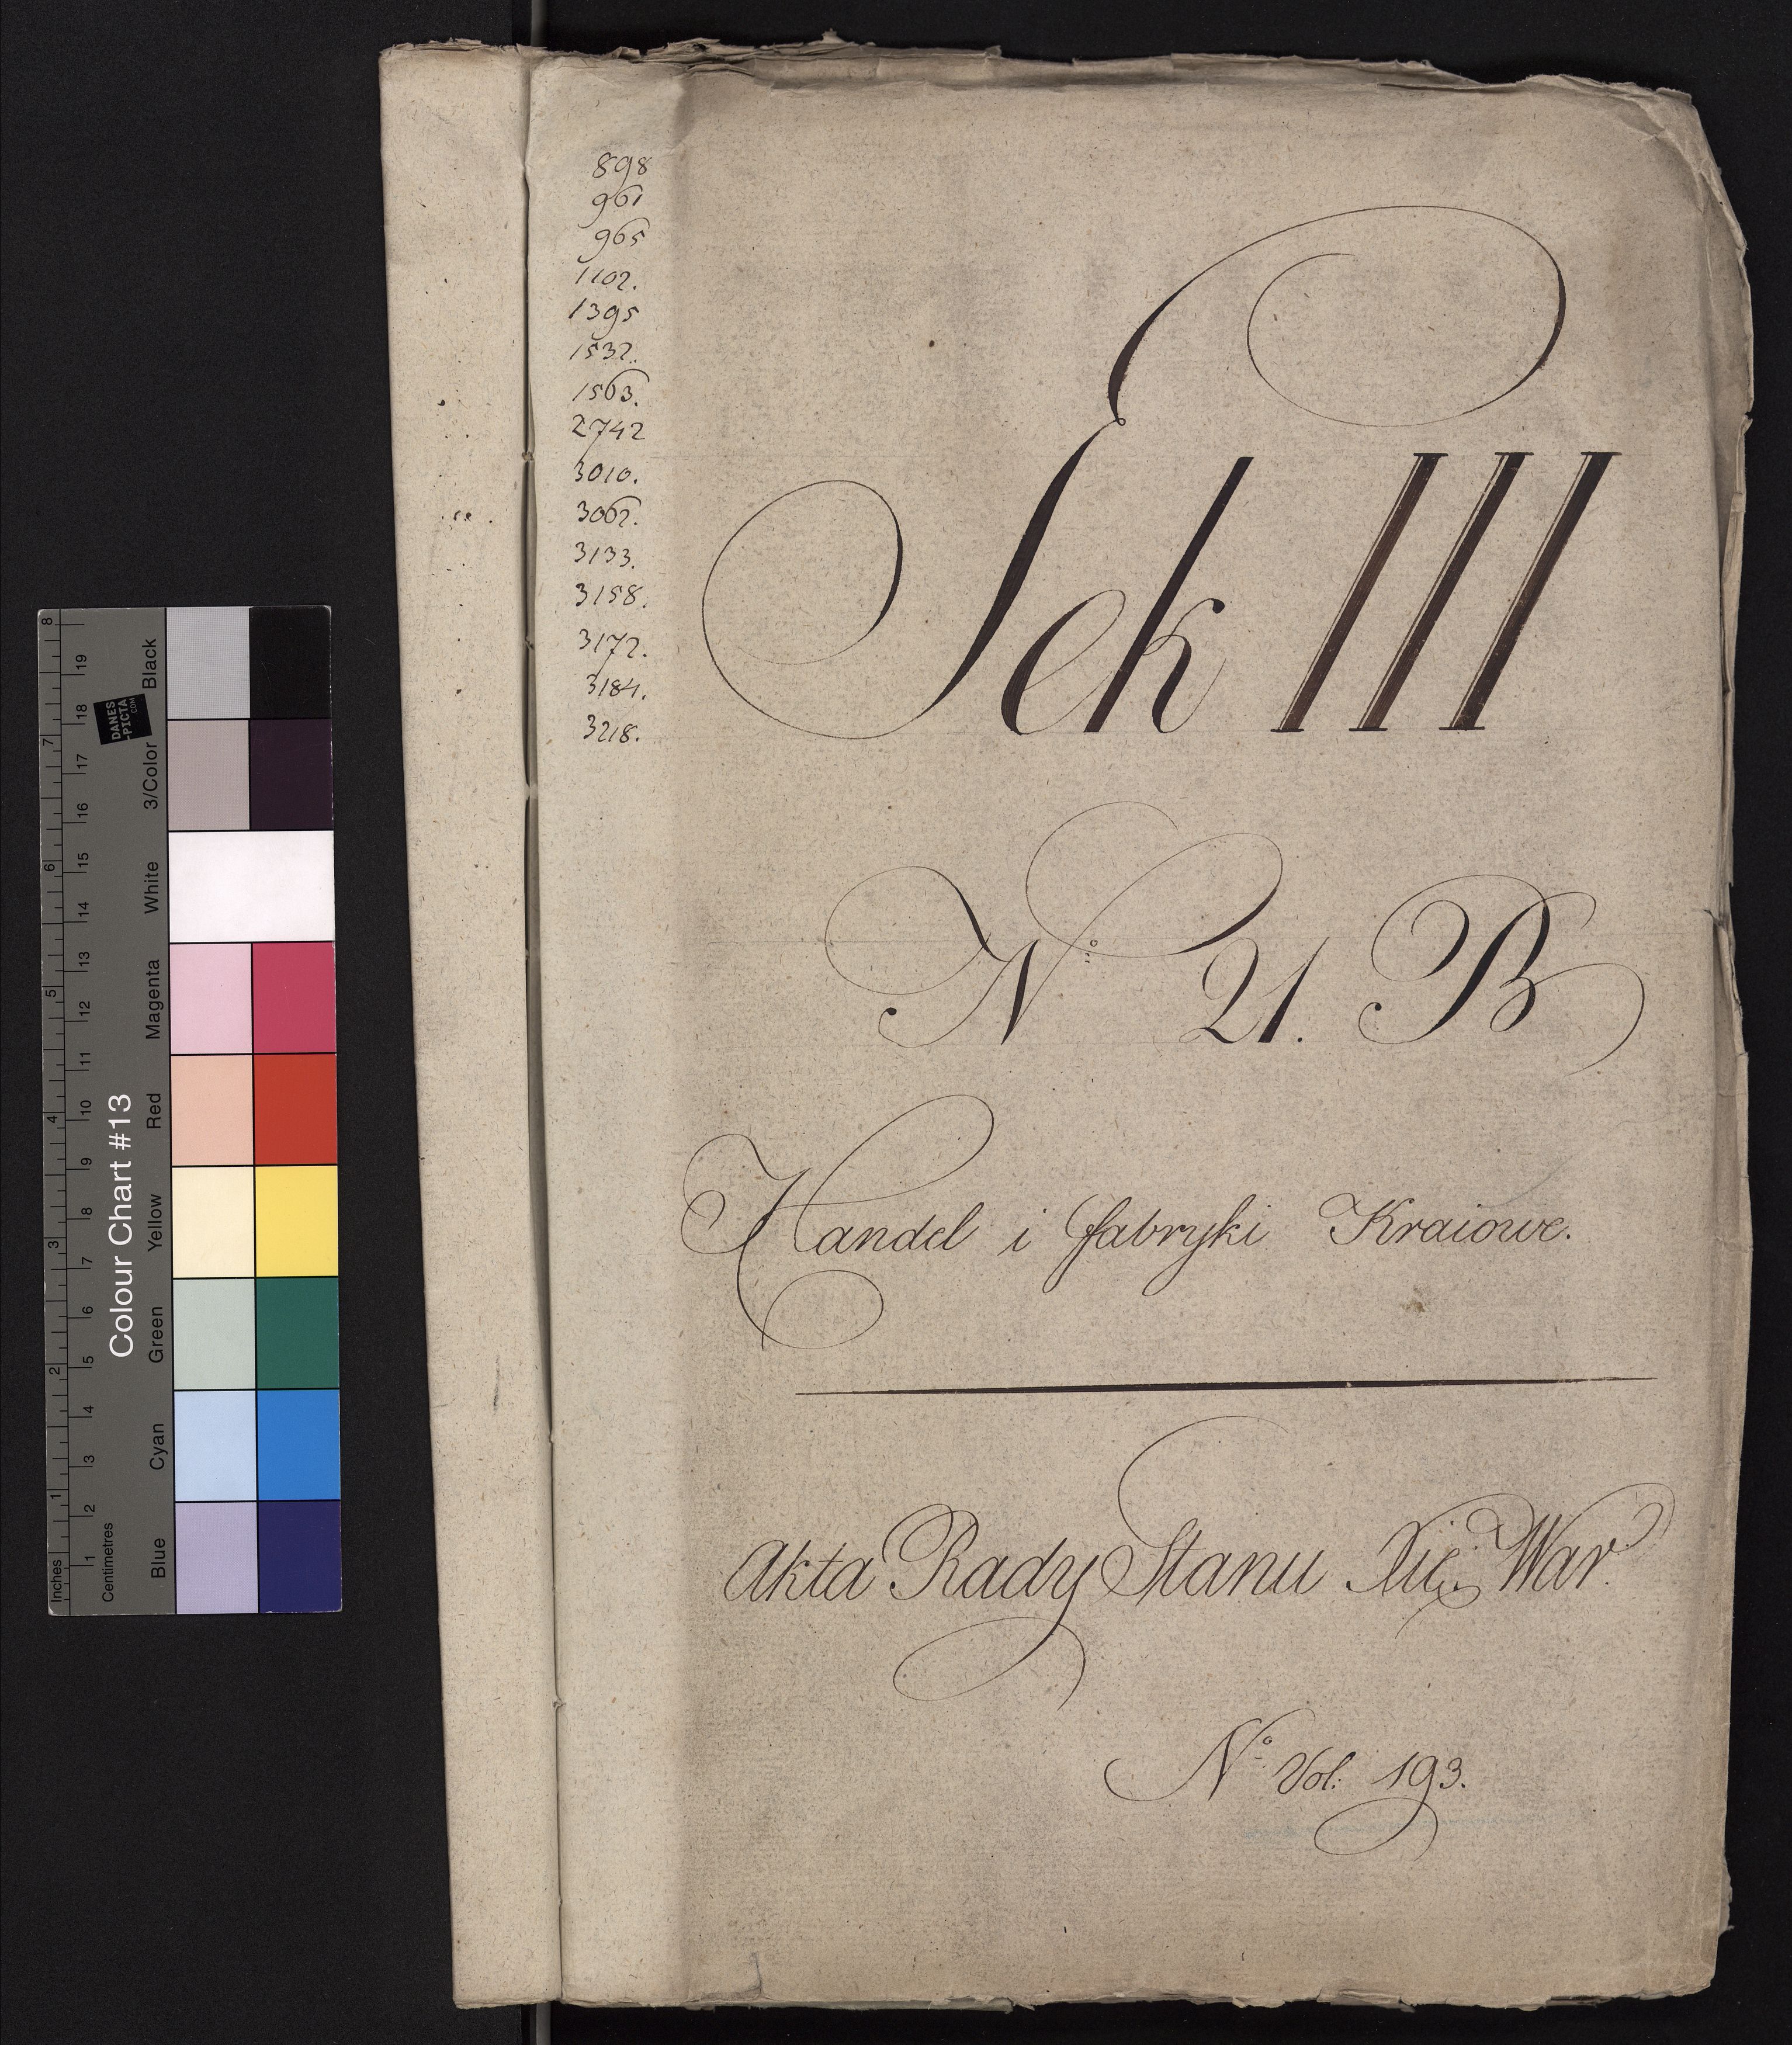 898
961
965
1102.
1395
1532.
1563.
2742
3010.
3062.
3133.
3158.
3172.
3184.
3218.
Sek III
No 21. B
Handel i fabryki Kraiowe.
Akta Rady Stanu Xię: War
No Vol: 193.
Colour Chart #13
Blue Cyan Green Yellow Red Magenta White 3/Color Black
Centimetres 1 2 3 4 5 6 7 8 9 10 11 12 13 14 15 16 17 18 19
Inches 1 2 3 4 5 6 7 8
DANES
-PICTA
.COM